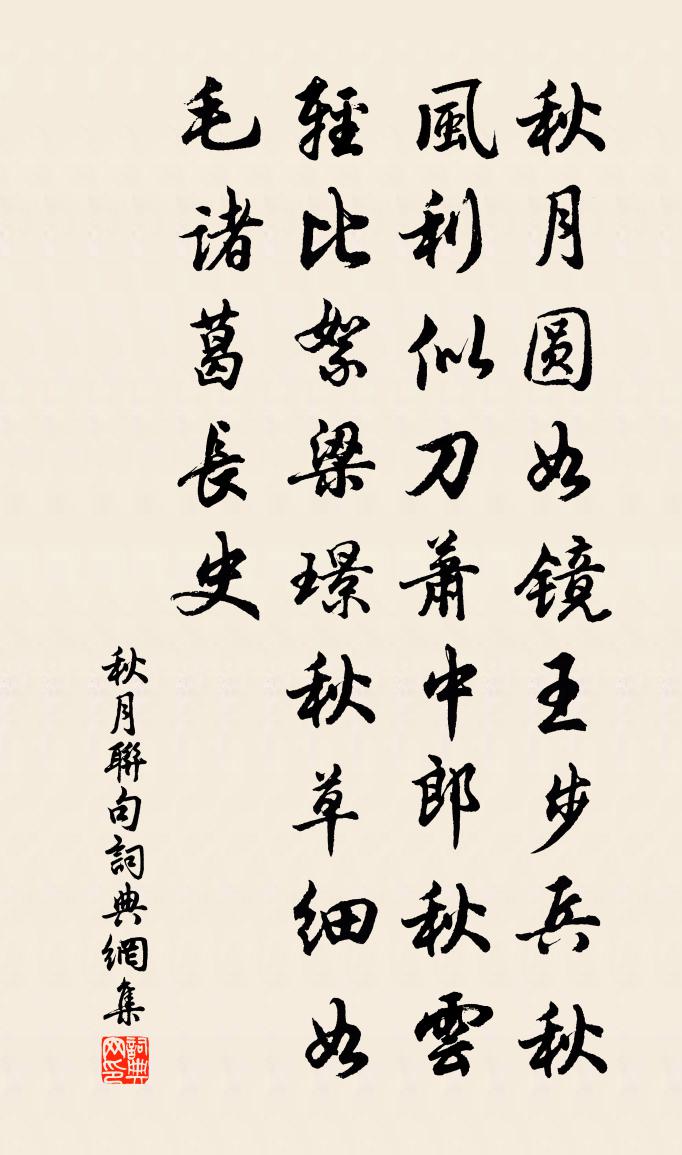 秋月圆如镜王步兵秋
風利似刀萧中郎秋雲
輕比絮梁璟秋草细如
毛諸葛長史
秋月聯句詞典網集
詞典网印